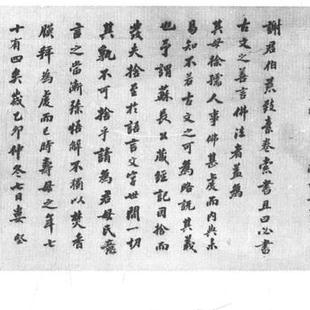 謝君伯燕致素卷索書且曰必書
古文之善言佛法者盖為
其母徐孺人事佛甚虔而內典未
易知不若古文之可為略說其義
也予謂蘇長公藏經記因捨而
發夫捨至於語言文字世間一切
其孰不可捨乎請為君母氏竟
言之當漸除悟解不獨以焚香
膜拜為虔而已時壽母之年七
十有四矣歲乙卯仲冬七日婁堅